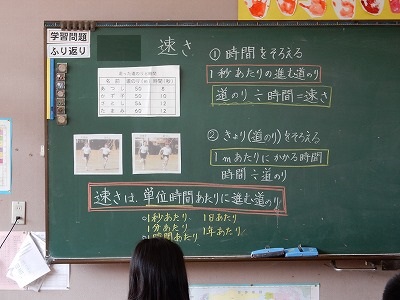 学習問題
ふり返り
速さ
走った道のりと時間
名前 道のり(m) 時間(秒)
あつし 50 8
すずき 50 10
さとし 54 12
たまみ 60 12
① 時間をそろえる
1秒あたりの進む道のり
道のり÷時間=速さ
② きょり(道のり)をそろえる
1mあたりにかかる時間
時間÷道のり
速さは、単位時間あたりに進む道のり
1秒あたり、 1日あたり
1分あたり 1年あたり
1時間あたり